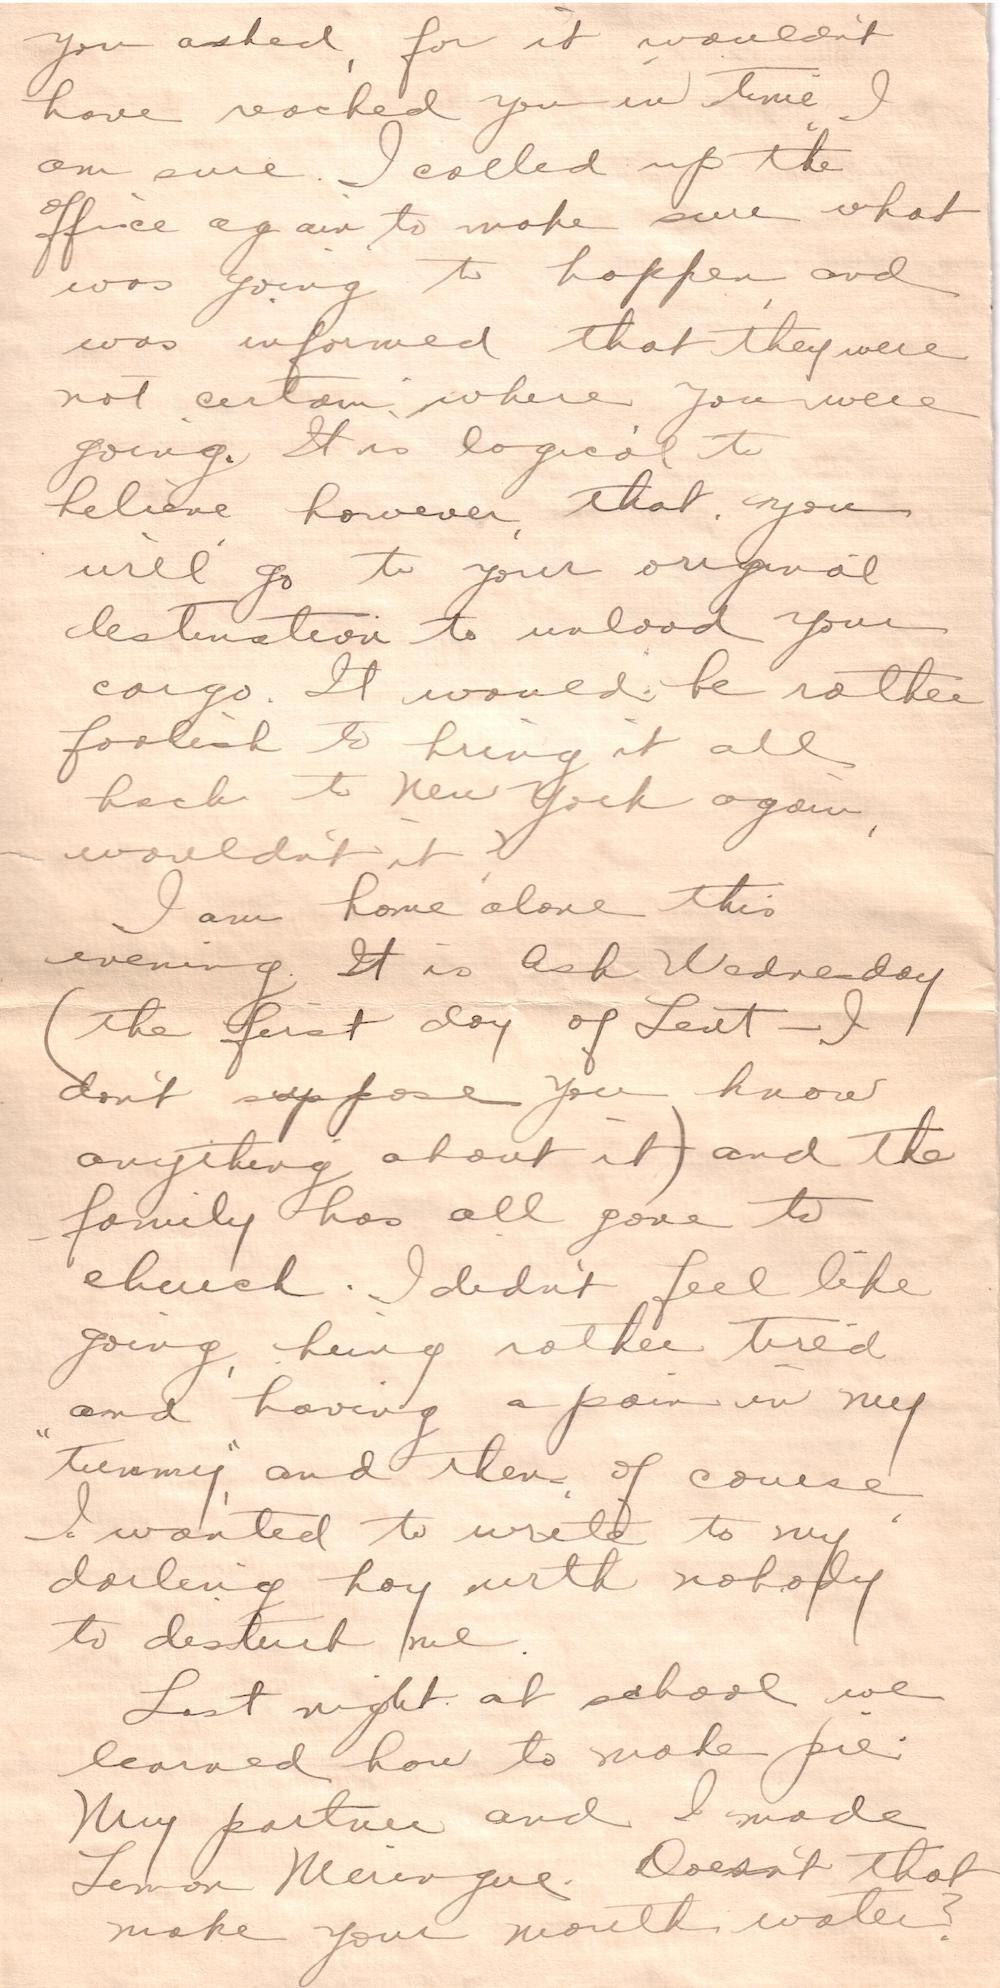 you asked, for it wouldn't
have reached you in time, I
am sure. I called up the
office again to make sure what
was going to happen, and
was informed that they were
not certain where you were
going. It is logical to
believe however, that you
will go to your original
destination to unload your
cargo. It would be rather
foolish to bring it all
back to New York again,
wouldn't it?
I am home alone this
evening. It is Ash Wednesday
(the first day of Lent – I
don't suppose you know
anything about it) and the
family has all gone to
church. I didn't feel like
going, being rather tired
and having a pain in my
"tummy", and then, of course,
I wanted to write to my
darling boy with nobody
to disturb me.
Last night at school we
learned how to make pie.
My partner and I made
Lemon Meringue. Doesn't that
make your mouth water?